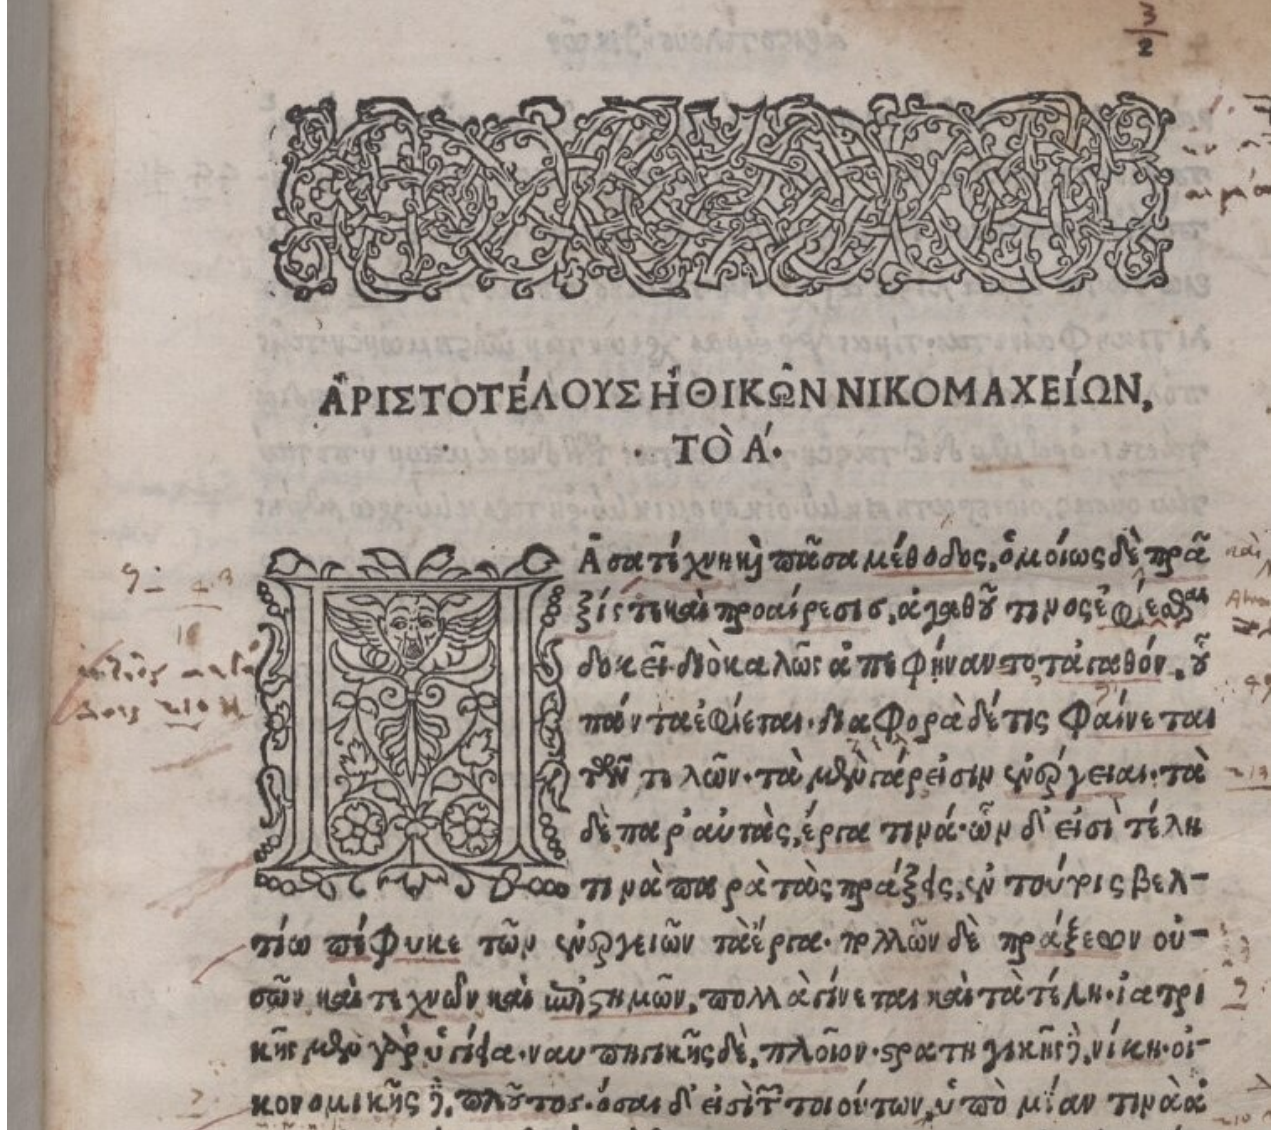 ἈΡΙΣΤΟΤΈΛΟΥΣ ἨΘΙΚΩ͂Ν ΝΙΚΟΜΑΧΕΊΩΝ,
ΤῸ Α´.
ΠΑ͂σα τέχνη καὶ πᾶσα μέθοδος, ὁμοίως δὲ πρᾶ
ξίς τε καὶ προαίρεσις, ἀγαθοῦ τινος ἐφίεσθαι
δοκεῖ· διὸ καλῶς ἀπεφήναντο τἀγαθόν, οὗ
πάντα ἐφίεται· διαφορὰ δέ τις φαίνεται
τῶν τελῶν· τὰ μὲν γάρ εἰσιν ἐνέργειαι· τὰ
δὲ παρ' αὐτὰς, ἔργα τινά· ὧν δ' εἰσὶ τέλη
τινὰ παρὰ τὰς πράξεις, ἐν τούτοις βελ-
τίω πέφυκε τῶν ἐνεργειῶν τὰ ἔργα· πολλῶν δὲ πράξεων οὐ-
σῶν καὶ τεχνῶν καὶ ἐπιστημῶν, πολλὰ γίνεται καὶ τὰ τέλη· ἰατρι
κῆς μὲν γὰρ ὑγίεια· ναυπηγικῆς δὲ, πλοῖον· στρατηγικῆς δὲ, νίκη· οἰ-
κονομικῆς δὲ, πλοῦτος· ὅσαι δ' εἰσὶ τῶν τοιούτων, ὑπὸ μίαν τινὰ ἀ
3
2